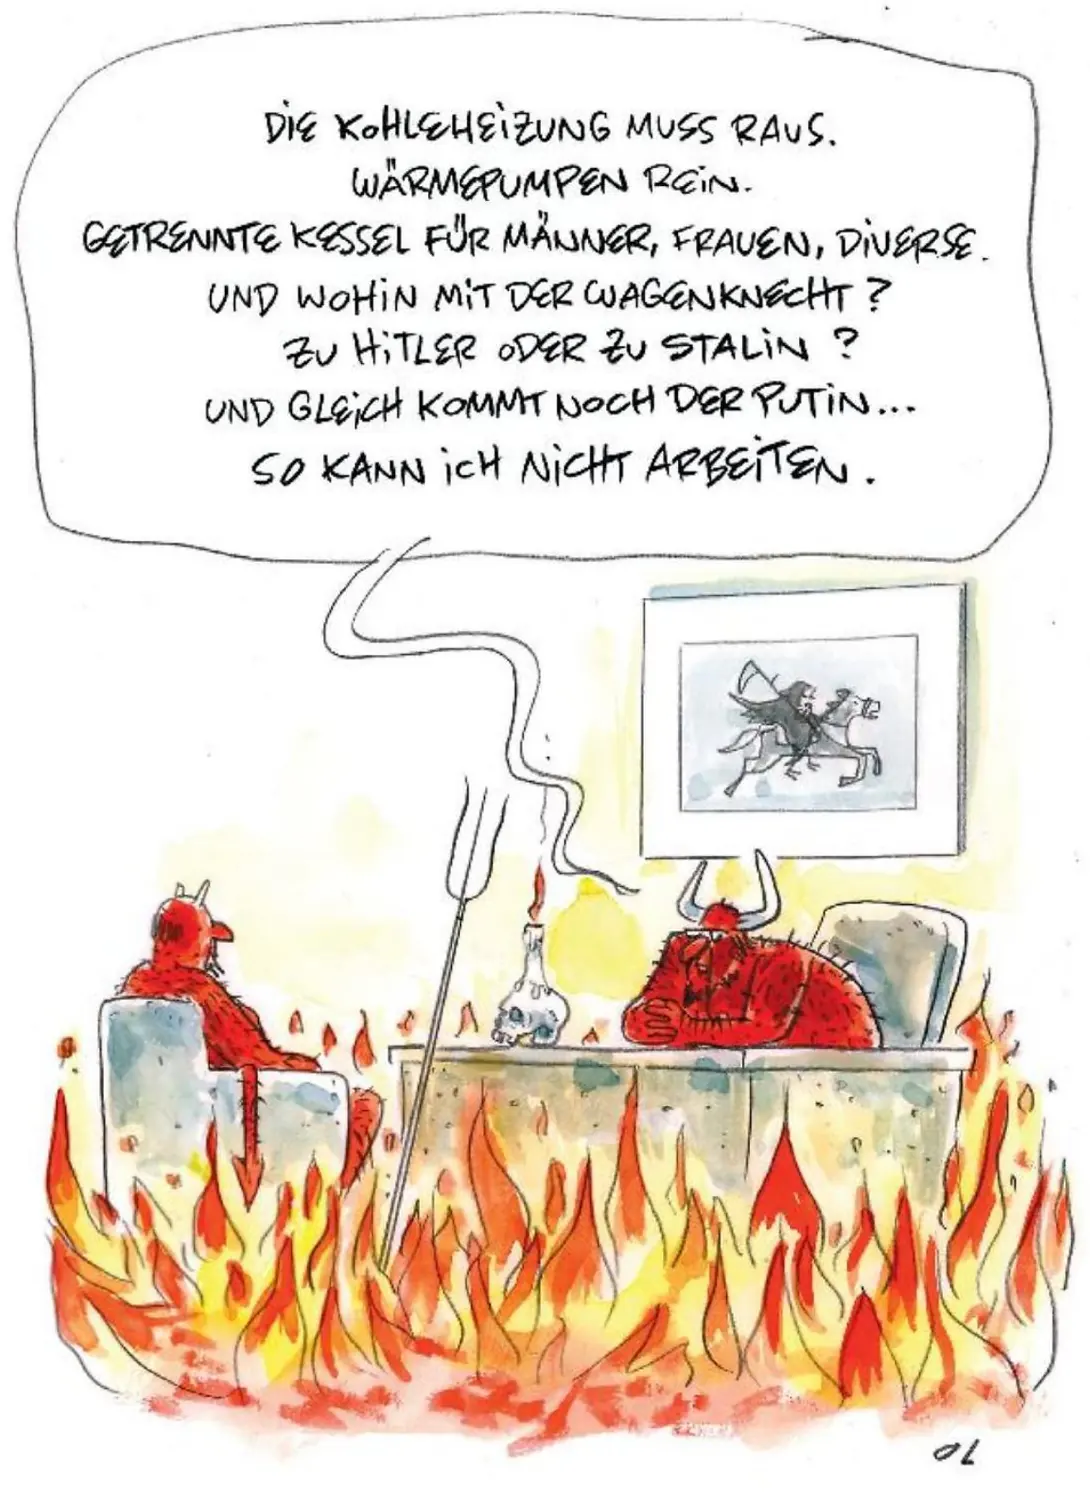 DIE KOHLEHEIZUNG MUSS RAUS.
WÄRMEPUMPEN REIN.
GETRENNTE KESSEL FÜR MÄNNER, FRAUEN, DIVERSE.
UND WOHIN MIT DER WAGENKNECHT?
ZU HITLER ODER ZU STALIN?
UND GLEICH KOMMT NOCH DER PUTIN...
SO KANN ICH NICHT ARBEITEN.
OL